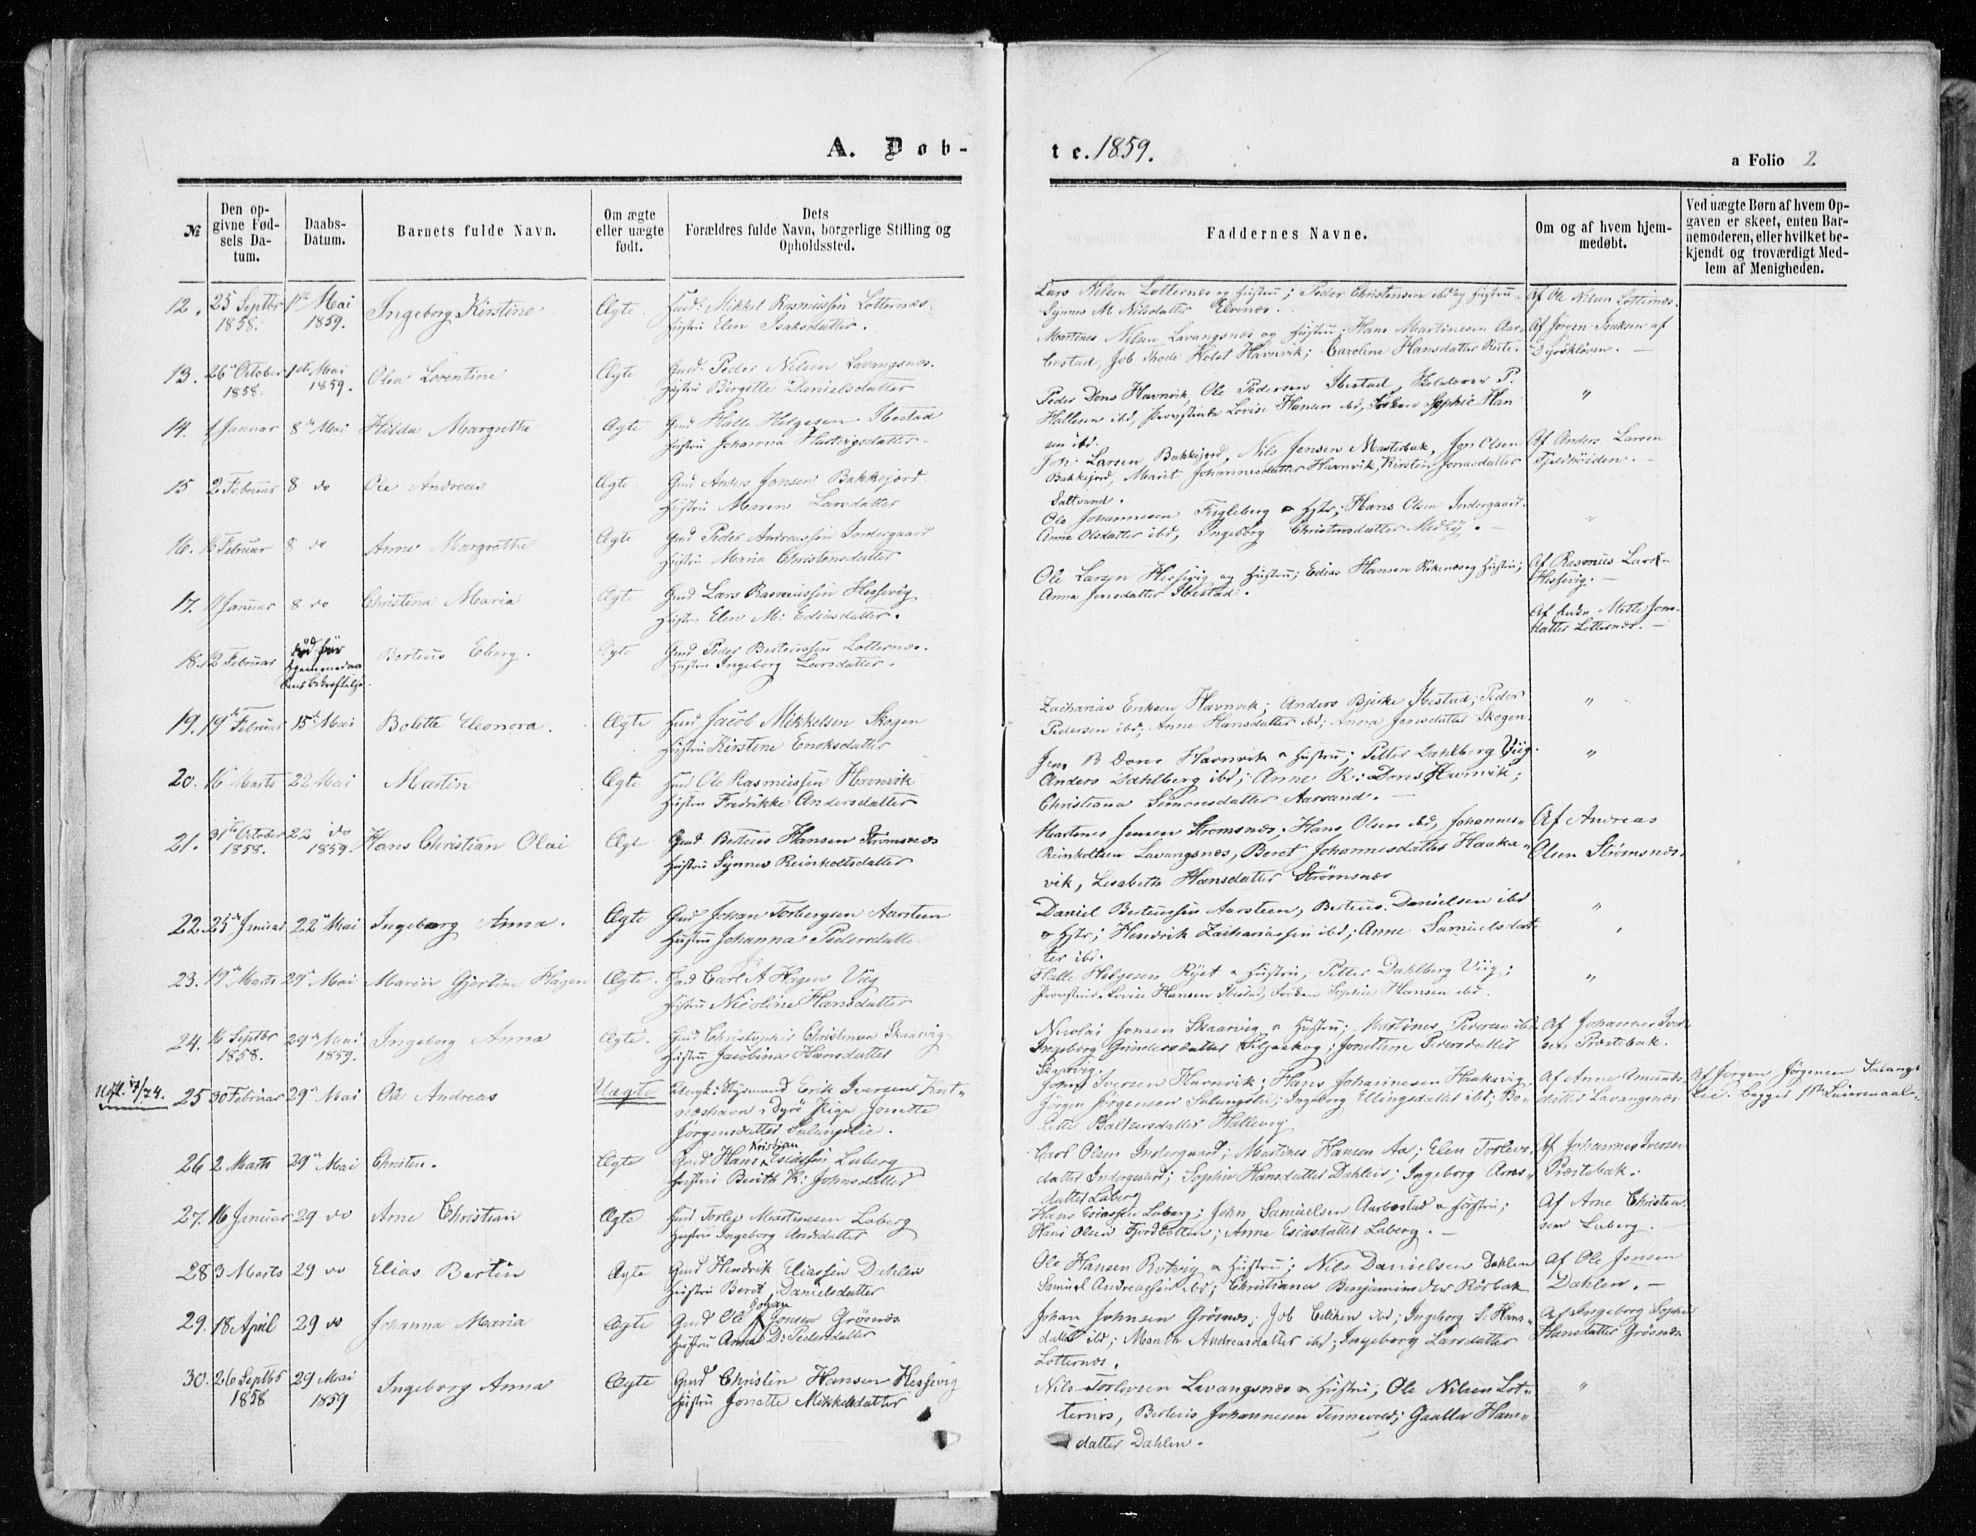 A. Døb-
te. 1859.
a Folio 2
№
Den op-
givne Fød-
sels Da-
tum.
Daabs-
Datum.
Barnets fulde Navn.
Om ægte
eller uægte
født.
Dets
Forældres fulde Navn, borgerlige Stilling og
Opholdssted.
Faddernes Navne.
Om og af hvem hjem-
medøbt.
Ved uægte Børn af hvem Op-
gaven er skeet, enten Bar-
nemoderen, eller hvilket be-
kjendt og troværdigt Med-
lem af Menigheden.
12. 25 Septbr 1ste Mai Ingeborg Kirstine Ægte Gud: Mikkel Rasmussen Lotternæs.
1858. 1859. Hustru Elen Isaksdatter.
Lars Nilsen Lotternæs og Hustru; Peder Christensen ibd og Hustru
Synnev M Nilsdatter Elvenæs.
Af Ole Nilsen Lotternæs.
13. 26 October 1ste Mai Olea Lorentine Ægte Gud: Peder Nilsen Lavangsnæs.
1858. 1859. Hustru Birgitte Danielsdatter
Martines Nilsen Lavangsnæs og Hustru; Hans Martinesen Aar-
bostad, Job Rode Holst Havnvik; Caroline Hansdatter
Af Jørgen Isaksen af
Dyrskløven.
14. 1 Januar 8de Mai Hilda Margrethe Ægte Gud Halle Helgesen Ibestad
Hustru Johanna Hartvigsdatter
Peder Dons Havnvik, Ole Pedersen Ibestad, P.
Hallesen ibd, Lovise Hansen ibd, Sophie Han
sen ibd.
"
15 2 Februar 8 do Ole Andreas Ægte Gud Anders Jonsen Bakkejord
Hustru Maren Larsdatter
Joh. Larsen Bakkejord, Nils Jensen Mastebak, Jon Olsen
Bakkejord, Marit Johannesdatter Havnvik, Kirsten Jonasdatter
Saltvand.
Af Anders Larsen
16. Februar 8 do Anne Margrethe Ægte Gud Peder Andreassen Indergaard
Hustru Maria Christensdatter
Ole Johannesen Fugleberg & Hstr; Hans Olsen Indergaard.
Anne Olsdatter ibd, Ingeborg Christensdatter
"
17. Januar 8 do Christina Maria Ægte Gud Lars Rasmussen Hessevig
Hustru Elen M: Ediasdatter.
Ole Larsen Hessevig og Hustru; Edias Hansen og Hustru;
Anna Jonsdatter Ibestad.
Af Rasmus Larsen
Hessevig.
18. 12 Februar Død før Berteus Eberg. Ægte Gud Peder Berteussen Lotternæs.
Hjemmedaa-
bens bekræftelse. Hustru Ingeborg Larsdatter.
Af Enke Mette Jons-
datter Lotternæs.
19. 19de Februar 15de Mai Bolette Eleonora. Ægte Gud Jacob Mikkelsen Skogen
Hustru Kirstine Enoksdatter
Zacharias Eriksen Havnvik; Anders Bjerke Ibestad; Peder
Pedersen ibd; Anne Hansdatter ibd; Anna Jonsdatter Skogen.
"
20. 16 Marts 22 Mai Martin Ægte Gud Ole Rasmussen Havnvik
Hustru Fredrikke Andersdatter
Jens B Dons Havnvik & Hustru; Petter Dahlberg Viig
Anders Dahlberg ibd; Anne R: Dons Havnvik;
Christiana Simonsdatter Aarsand.
"
21. 31te October 22 do Hans Christian Olai Ægte Gud Berteus Hansen Strømsnæs
1858. 1859. Hustru Synnev Reinholtsdatter
Martines Jensen Strømsnæs, Hans Olsen ibd, Johannes
Reinholtsen Lavangsnæs, Beret Johannesdatter Haaka-
vik, Lisabeth Hansdatter Strømsnæs
Af Andreas
Olsen Strømsnæs.
22. 25de Januar 22de Mai Ingeborg Anna. Ægte Gud Johan Torbergsen Aarsteen
Hustru Johanna Pedersdatter
Daniel Berteussen Aarsteen, Berteus Danielsen ibd
& Hstr; Hendrik Zachariassen ibd; Anne Samuelsdat-
ter ibd.
"
23. 19de Marts 29de Mai Maren Gjertine Hagen Ægte. Gud Carl A Hagen Viig
Hustru Nicoline Hansdatter
Halle Helgesen Røjet & Hustru, Petter Dahlberg Viig;
Lovise Hansen Ibestad, Sophie Hansen ibd.
"
24. 16 Septbr 29de Mai Ingeborg Anna Ægte. Gud Christopher Christensen Skaarvig
1858. 1859. Hustru Jacobina Hansdatter
Nicolai Jonsen Skaarvig & Hustru; Martines Pedersen ibd
Ingeborg Gundersdatter Seljeskog; Jonettine Pedersdatter
Skaarvig.
Af Johannes Iver-
sen Præstebak.
25 30 Februar 29de Mai Ole Andreas Uægte Ungk: Erik Iversen
i Dyrø Pige Jonette
Jørgensdatter Salangslie.
Johan Iversen Havnvik; Hans Johannesen Haakavig,
Jørgen Jørgensen Salangslie; Ingeborg Ellingsdatter ibd; Bo-
lette Baltzersdatter Hallevig
Af Anne Amunds-
datter Lavangsnæs
Af Jørgen Jørgensen Salangs-
lie. Begges 1ste Leiermaal.
26 2 Marts 29de Mai Christen. Ægte Gud Hans Kristian Esaiassen Laberg
Hustru Berith K: Johnsdatter
Carl Olsen Indergaard; Martines Hansen Aa; Elen Torlevs-
datter Indergaard; Sophie Hansdatter Dahlen; Ingeborg Arns-
datter Laberg
Af Johannes Iversen
Præstebak.
27. 16 Januar 29 do Arne Christian Ægte Gud Torlejv Martinesen Laberg
Hustru Ingeborg Arnsdatter
Hans Esaiassen Laberg; John Samuelsen Aarbostad & Hustru;
Hans Olsen Fjordbotten; Anne Esaiasdatter Laberg.
Af Arne Christen-
sen Laberg.
28 3 Marts 29 do Elias Bertin Ægte Gud Hendrik Eliassen Dahlen
Hustru Beret Danielsdatter
Ole Hansen Rotvig & Hustru; Nils Danielsen Dahlen
Samuel Andreassen ibd; Christiana Benjaminsdtr Rørbak
Af Ole Jensen
Dahlen.
29. 18 April 29 do Johanna Maria Ægte Gud Ole Johan Jonsen Grøsnæs
Hustru Anna D: Pedersdatter
Johan Johnsen Grøsnæs; Job ibd; Ingeborg S. Hans-
datter ibd; Andreasdatter ibd; Ingeborg Larsdatter
Lotternæs.
Af Ingeborg Sophie
Hansdatter Grøsnæs
30. 26 Septbr 29 Mai Ingeborg Anna Ægte Gud Christen Hansen Hessevig
1858 1859 Hustru Jonette Mikkelsdatter
Nils Torlevsen Lavangsnæs & Hustru; Ole Nilsen Lot-
ternæs, Berteus Johannesen Tennevold; Hans-
datter Dahlen.
"